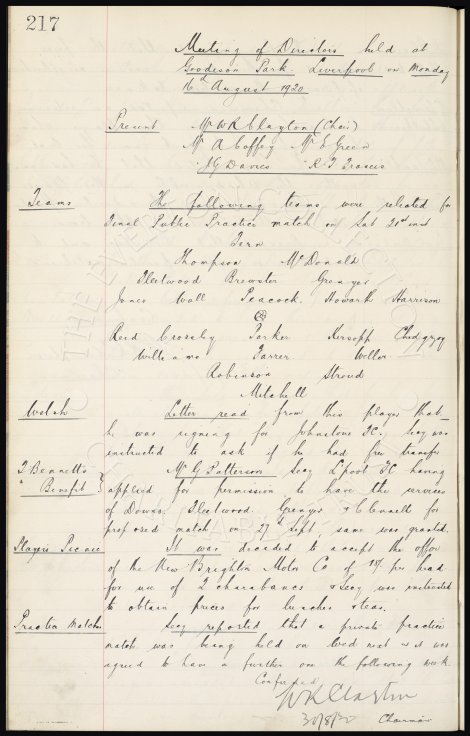 217
Meeting of Directors held at
Goodison Park Liverpool on Monday
16th August 1920
Present Mr W R Clayton (Chair)
Mr A Coffey Mr E Green
" J G Davies " R T Francis
Teams The following teams were selected for
Final Public Practice match on Sat 21st inst
Fern
Thompson McDonald
Fleetwood Brewster Grenyer
Jones Wall Peacock Howarth Harrison
Reid Crossley Parker Kirsopp Chedgzoy
Williams Farrer Weller
Robinson Stroud
Mitchell
Welsh Letter read from this player that
he was signing for Johnstone FC. Secy was
instructed to ask if he had free transfer
T Bennett's Mr G Patterson Secy L'pool FC having
" Benefit applied for permission to have the services
of Downs. Fleetwood. Grenyer & C Cennell for
proposed match on 27th Sept, same was granted.
Players Picnic It was decided to accept the offer
of the New Brighton Motor Co of per head
for use of 2 charabancs & Secy was instructed
to obtain prices for lunches & teas.
Practice Matches Secy reported that a private practice
match was being held on Wed next & it was
agreed to have a further one the following week
Confirmed
W R Clayton
30/8/20 Chairman